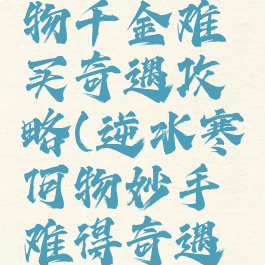 物千金难
买奇遇攻
略(逆水寒
何物妙手
难得奇遇